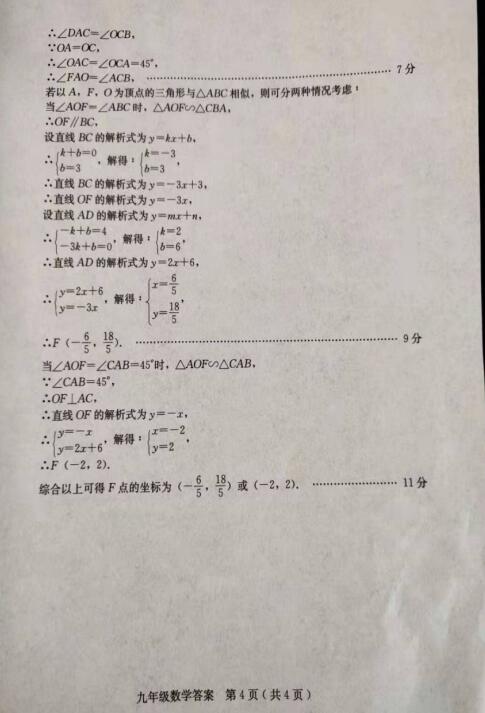 ∴∠DAC=∠OCB,
∵OA=OC,
∴∠OAC=∠OCA=45°,
∴∠FAO=∠ACB, ……………………………………………… 7分
若以 A，F，O 为顶点的三角形与△ABC 相似，则可分两种情况考虑：
当∠AOF=∠ABC 时，△AOF∽△CBA,
∴OF∥BC,
设直线 BC 的解析式为 y=kx+b,
∴{k+b=0 b=3，解得：{k=-3 b=3，
∴直线 BC 的解析式为 y=-3x+3,
∴直线 OF 的解析式为 y=-3x,
设直线 AD 的解析式为 y=mx+n,
∴{-k+b=4 -3k+b=0，解得：{k=2 b=6，
∴直线 AD 的解析式为 y=2x+6,
∴{y=2x+6 y=-3x，解得：{x=6/5 y=18/5，
∴F（-6/5，18/5）. ……………………………………………… 9分
当∠AOF=∠CAB=45°时，△AOF∽△CAB,
∵∠CAB=45°,
∴OF⊥AC,
∴直线 OF 的解析式为 y=-x,
∴{y=-x y=2x+6，解得：{x=-2 y=2，
∴F（-2，2）.
综合以上可得 F 点的坐标为（-6/5，18/5）或（-2，2）. ……………… 11分
九年级数学答案 第4页（共4页）